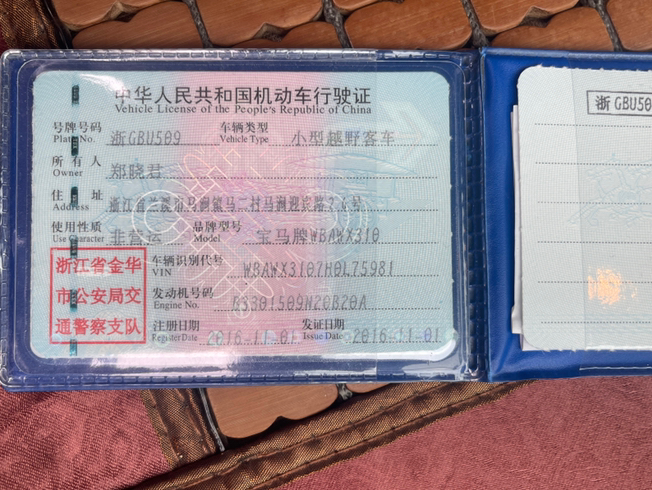 中华人民共和国机动车行驶证
Vehicle License of the People's Republic of China
号牌号码 浙GBU509 车辆类型 小型越野客车
Plate No. Vehicle Type
所有人 郑晓君
Owner
住址 浙江省兰溪市马涧镇马二村马涧迎宾路26号
Address
使用性质 非营运 品牌型号 宝马牌WBAWX310
Use Character Model
浙江省金华
市公安局交
通警察支队
车辆识别代号 WBAWX3107H0L75981
VIN
发动机号码
Engine No.
注册日期 2016-11-01 发证日期 2016-11-01
Register Date Issue Date
浙GBU50